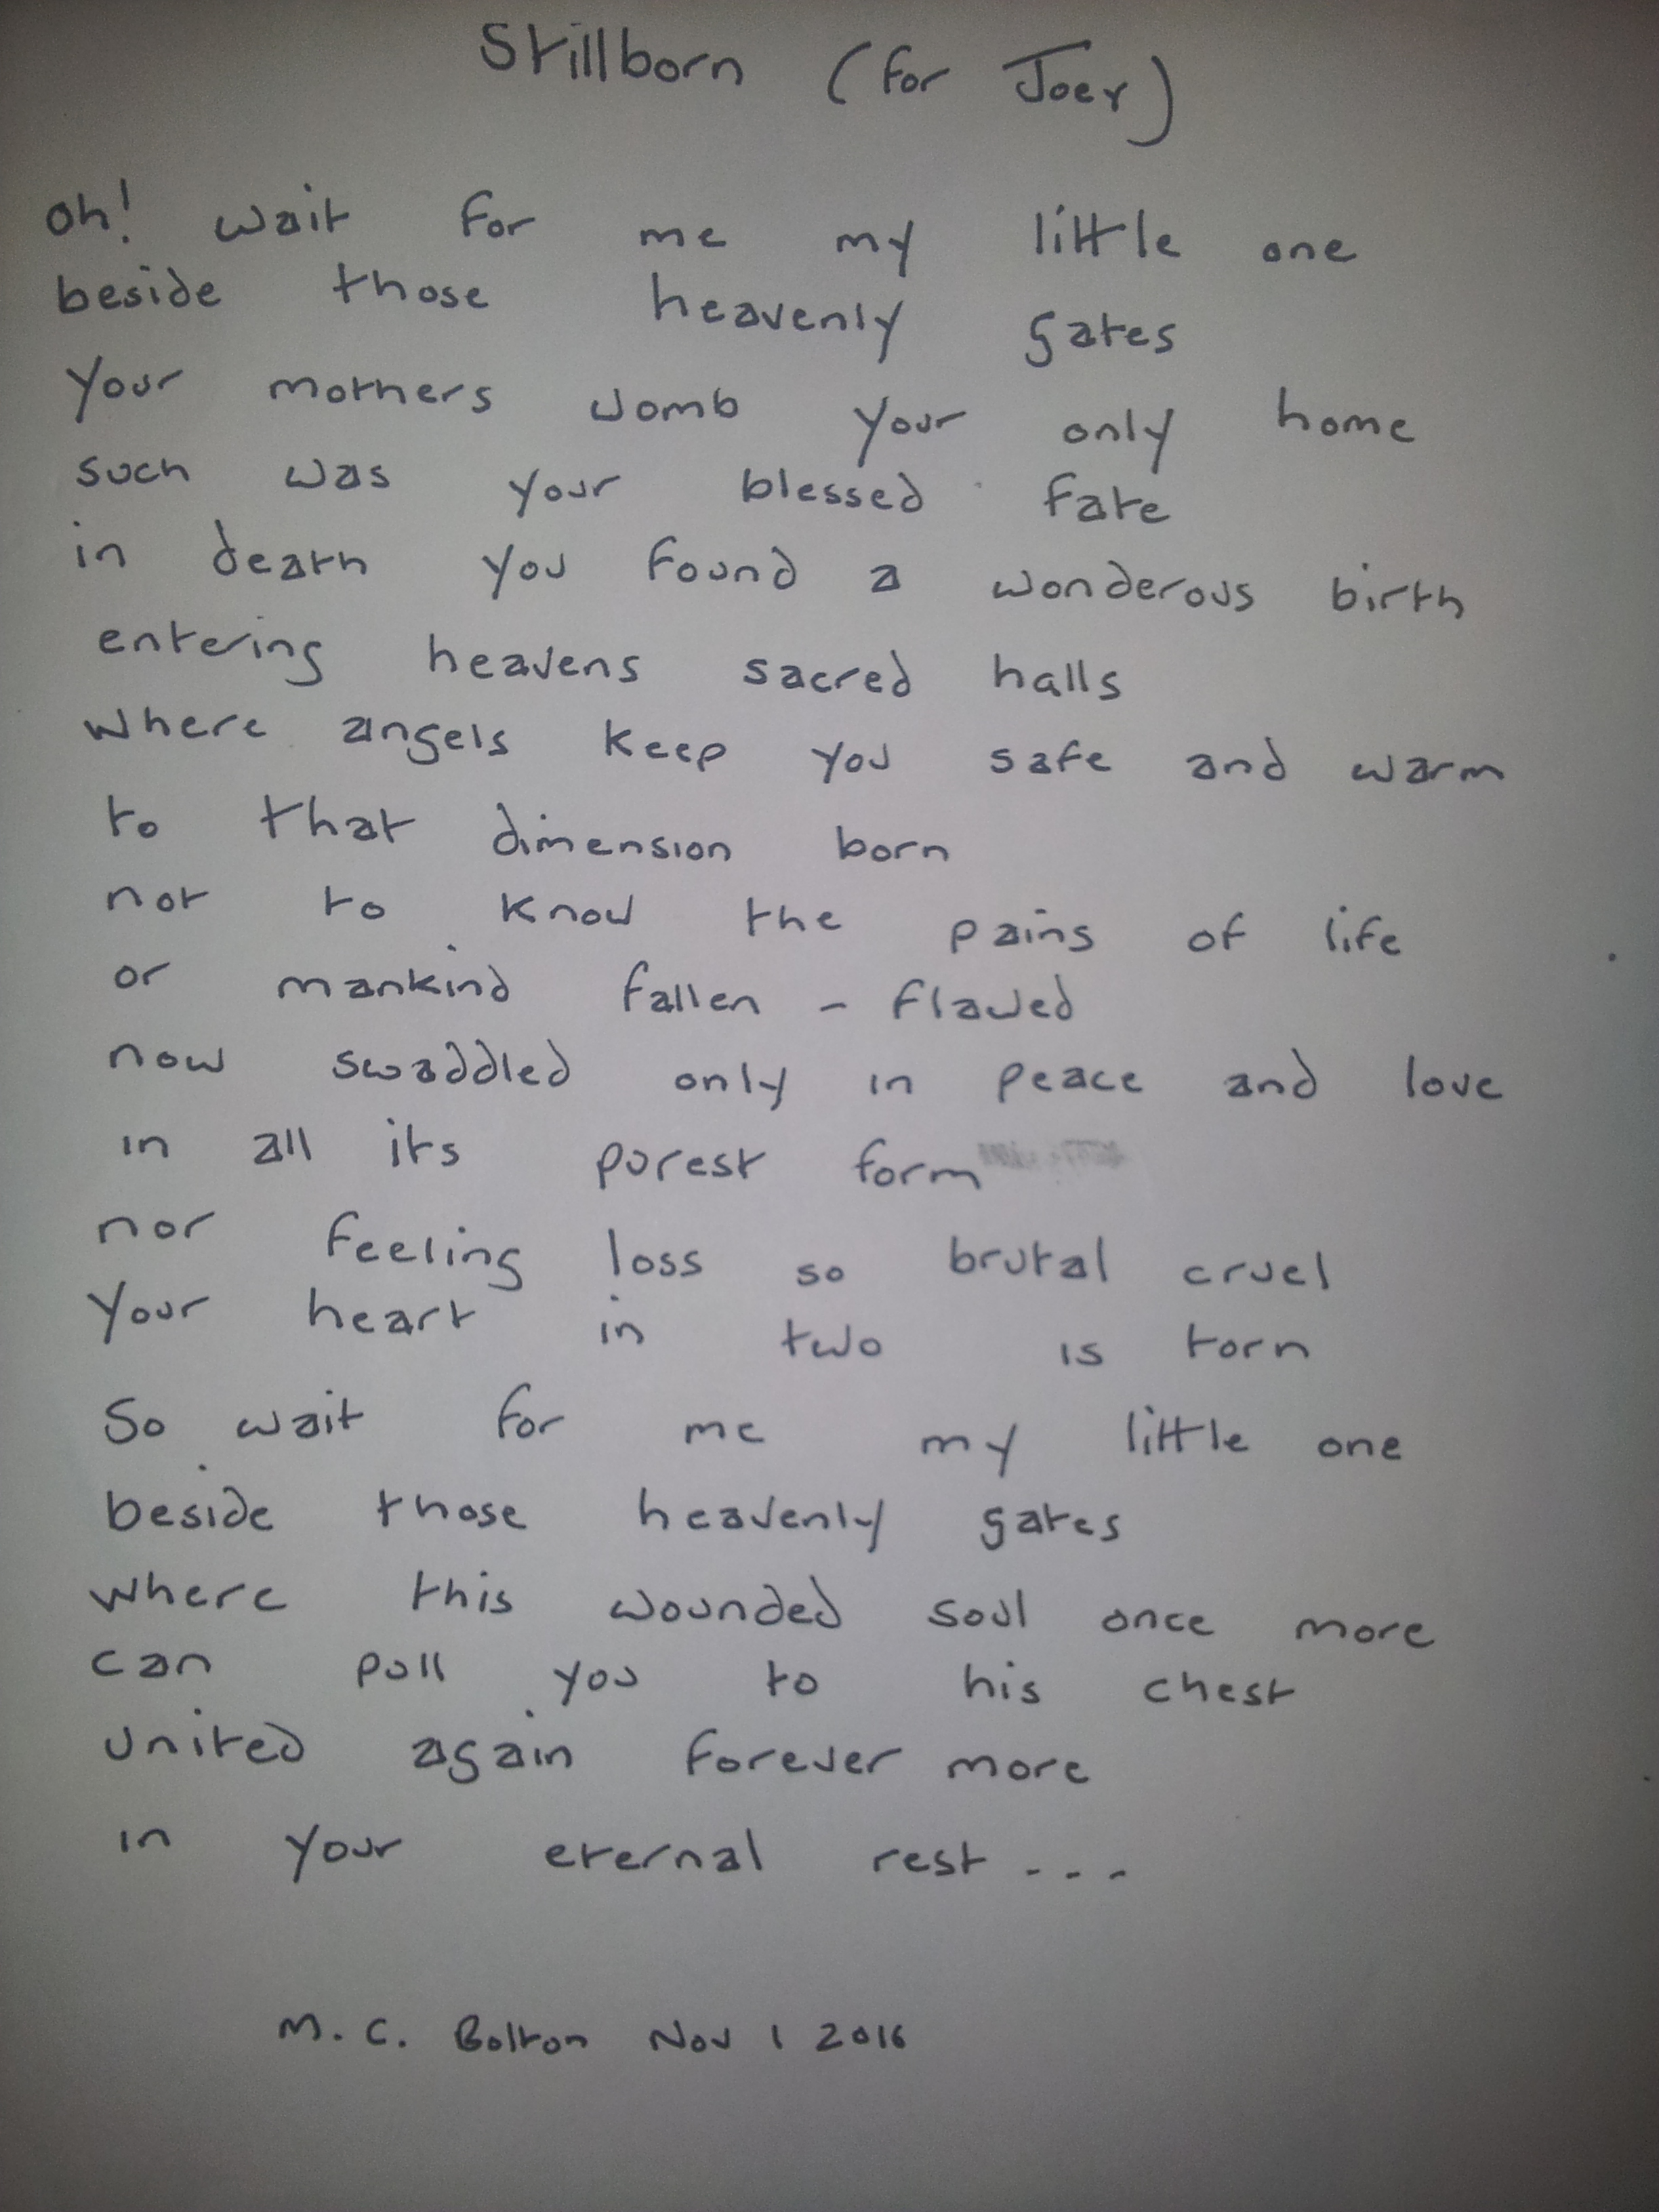 Stillborn (for Joey)
Oh! wait for me my little one
beside those heavenly gates
your mothers womb your only home
such was your blessed fate
in death you found a wonderous birth
entering heavens sacred halls
where angels keep you safe and warm
to that dimension born
not to know the pains of life
or mankind fallen - flawed
now swaddled only in peace and love
in all its purest form
nor feeling loss so brutal cruel
your heart in two is torn
So wait for me my little one
beside those heavenly gates
where this wounded soul once more
can pull you to his chest
united again forever more
in your eternal rest ...
M. C. Bolton Nov 1 2016